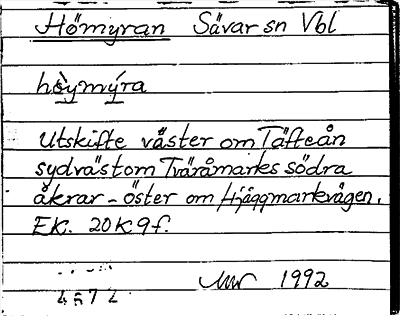 Hömyran Sävar sn Vbl
hòymýra
Utskifte väster om Täfteån
sydväst om Tväråmarks södra
åkrar - öster om Hjåggmarkvägen.
EK. 20K9f.
1992
4672